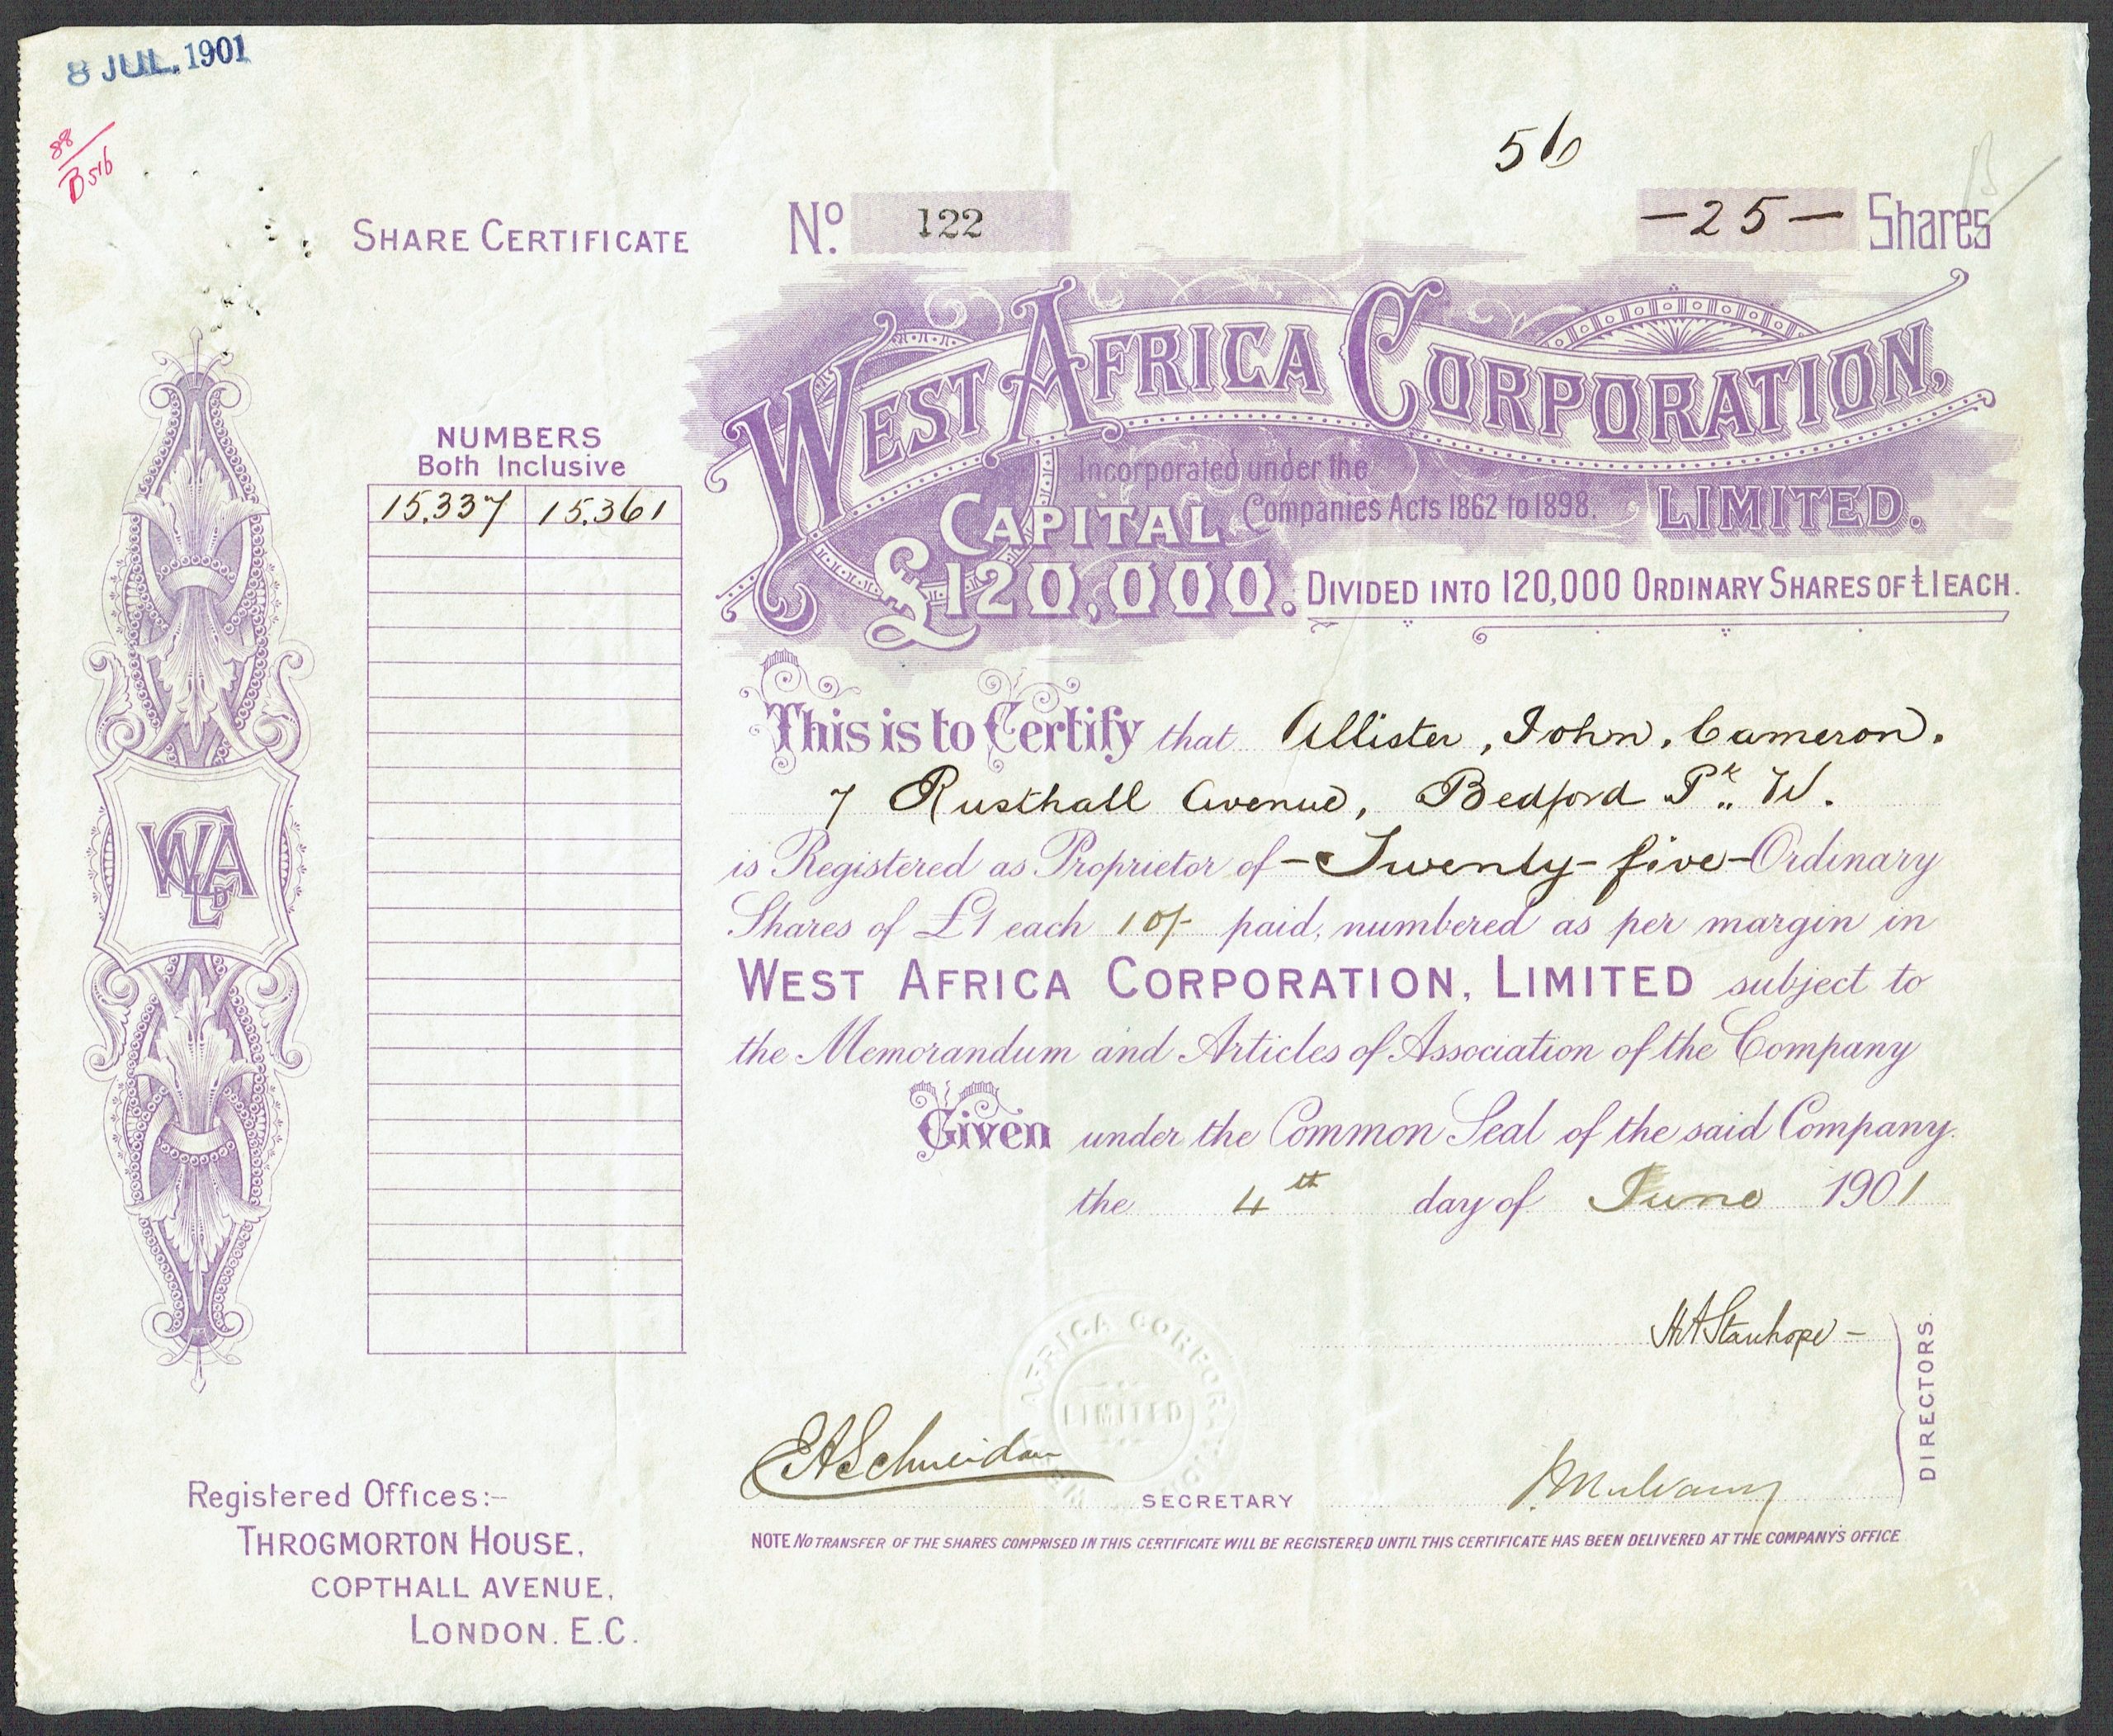 8 JUL. 1901
88
B 516
56
SHARE CERTIFICATE
No. 122
-25- Shares
WEST AFRICA CORPORATION,
LIMITED.
Incorporated under the
Companies Acts 1862 to 1898.
CAPITAL
£120,000. DIVIDED INTO 120,000 ORDINARY SHARES OF £1 EACH.
NUMBERS
Both Inclusive
15,337 15,361
This is to Certify that Allister, John, Cameron.
7 Rusthall Avenue, Bedford Pk. W.
is Registered as Proprietor of -Twenty-five- Ordinary
Shares of £1 each 10/- paid, numbered as per margin in
WEST AFRICA CORPORATION, LIMITED subject to
the Memorandum and Articles of Association of the Company
Given under the Common Seal of the said Company.
the 4th day of June 1901
WCA
LD
WEST AFRICA CORPORATION
LIMITED
HAStanhope -
EASchneidau
SECRETARY
DIRECTORS.
NOTE NO TRANSFER OF THE SHARES COMPRISED IN THIS CERTIFICATE WILL BE REGISTERED UNTIL THIS CERTIFICATE HAS BEEN DELIVERED AT THE COMPANY'S OFFICE
Registered Offices:-
THROGMORTON HOUSE,
COPTHALL AVENUE,
LONDON. E.C.